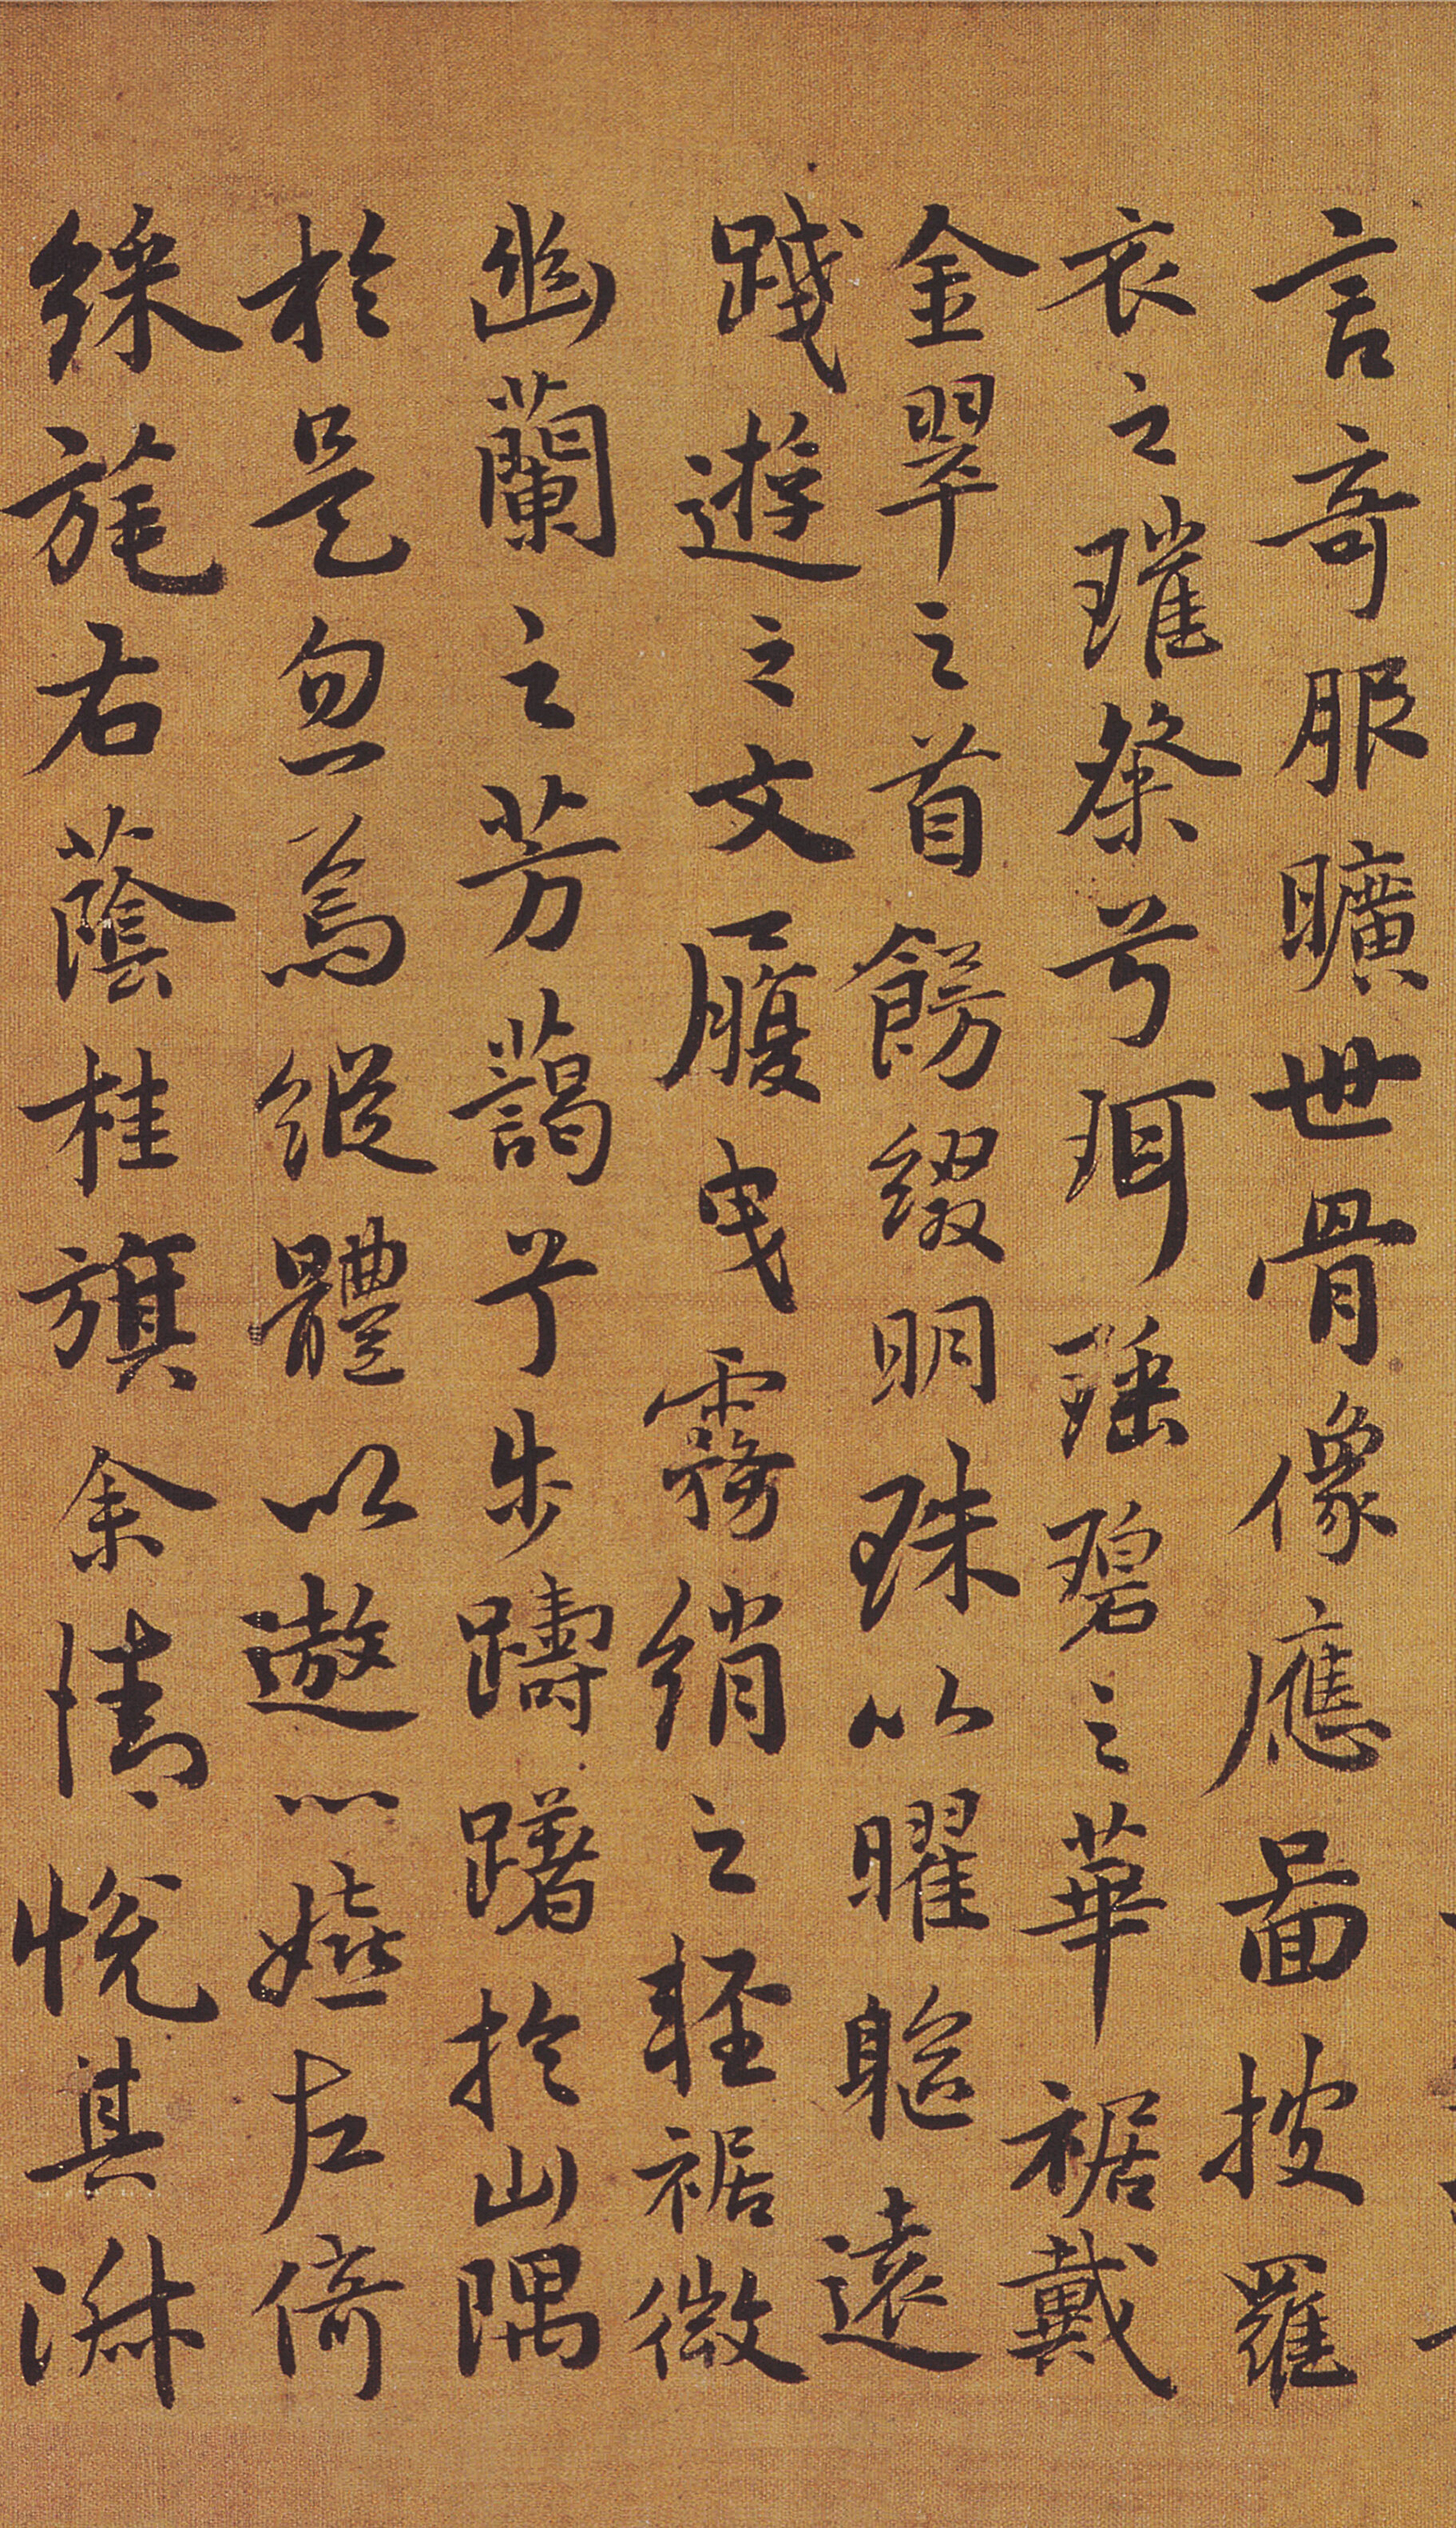 言奇服曠世骨像應圖披羅
衣之璀粲兮珥瑤碧之華裾戴
金翠之首餝綴明珠以曜軀遠
踐遊之文履曳霧綃之輕裾微
幽蘭之芳藹兮步躊躇於山隅
於是忽焉縱體以遨以嬉左倚
綵旄右蔭桂旗余情悅其淋